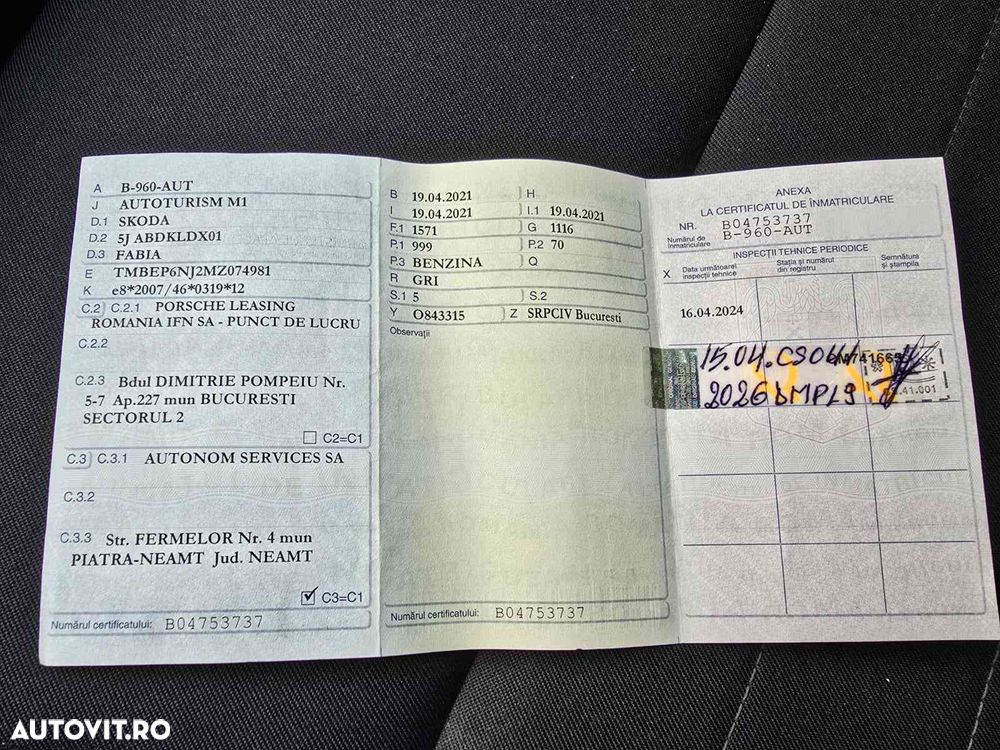 A B-960-AUT
J AUTOTURISM M1
D.1 SKODA
D.2 5J ABDKLDX01
D.3 FABIA
E TMBEP6NJ2MZ074981
K e8*2007/46*0319*12
C.2 C.2.1 PORSCHE LEASING
ROMANIA IFN SA - PUNCT DE LUCRU
C.2.2
C.2.3 Bdul DIMITRIE POMPEIU Nr.
5-7 Ap.227 mun BUCURESTI
SECTORUL 2
C2=C1
C.3 C.3.1 AUTONOM SERVICES SA
C.3.2
C.3.3 Str. FERMELOR Nr. 4 mun
PIATRA-NEAMT Jud. NEAMT
C3=C1
Numărul certificatului: B04753737
B 19.04.2021 H
I 19.04.2021 I.1 19.04.2021
F.1 1571 G 1116
P.1 999 P.2 70
P.3 BENZINA Q
R GRI
S.1 5 S.2
Y O843315 Z SRPCIV Bucuresti
Observații
Numărul certificatului: B04753737
ANEXA
LA CERTIFICATUL DE ÎNMATRICULARE
NR. B04753737
Numărul de înmatriculare B-960-AUT
INSPECȚII TEHNICE PERIODICE
X Data următoarei inspecții tehnice Stația și numărul din registru Semnătura și ștampila
16.04.2024
15.04.
2026
41.001
AUTOVIT.RO